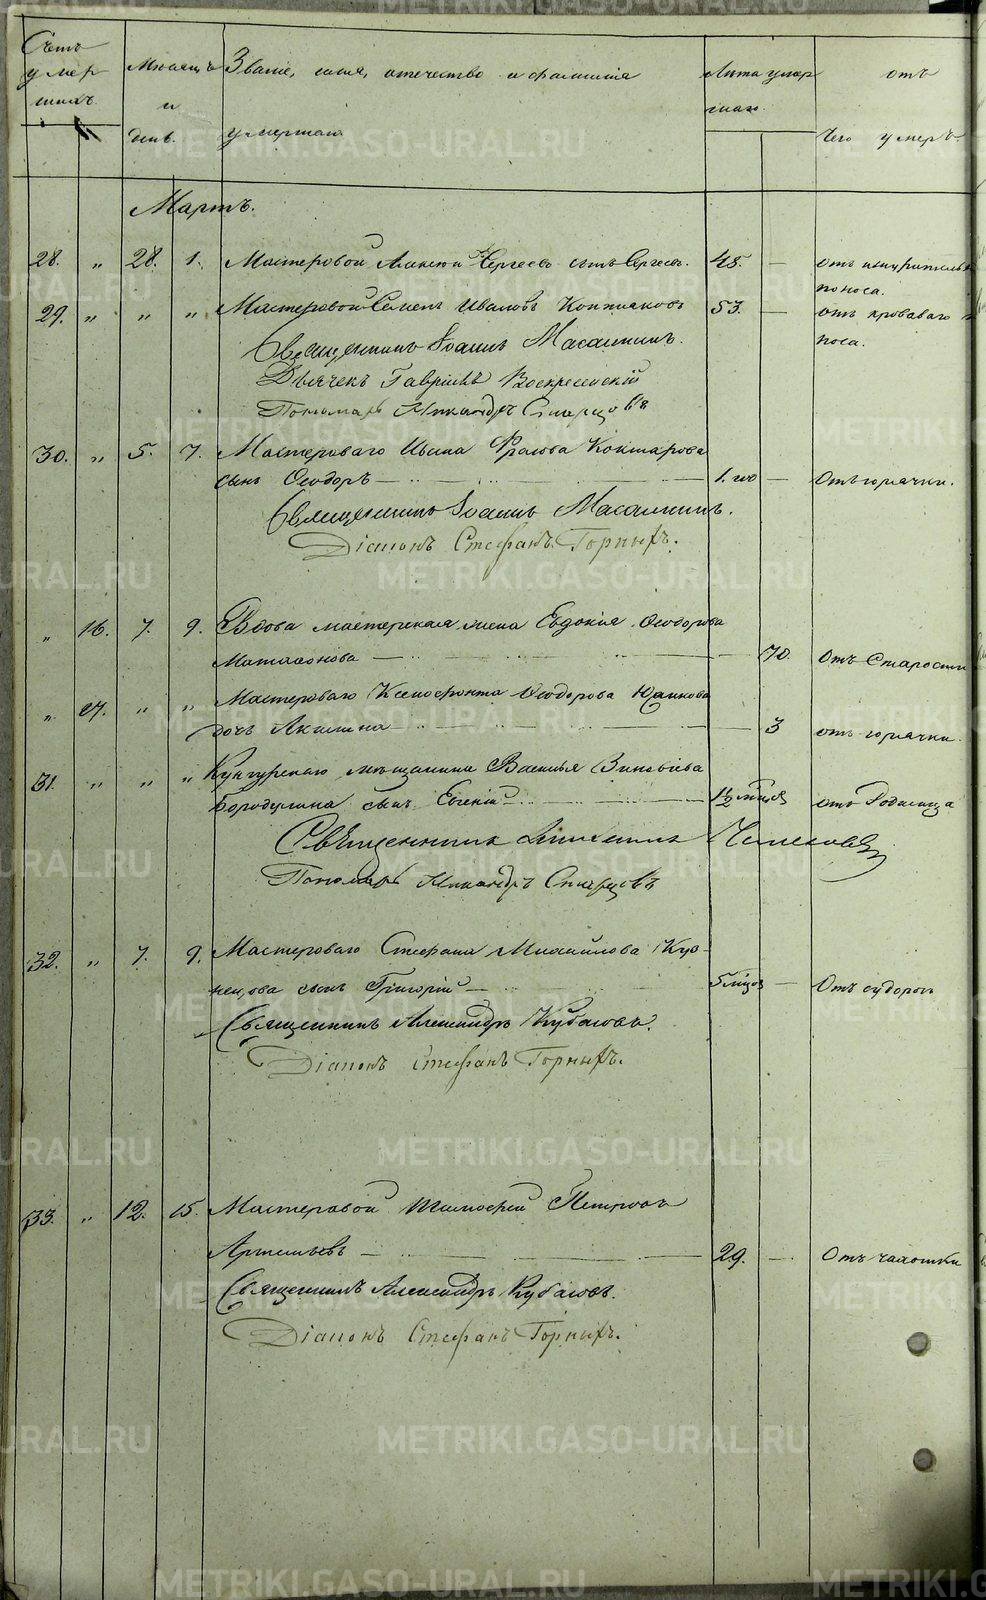 Счетъ умер шихъ.
Мѣсяцъ и день.
Званіе, имя, отчество и фамилія умершаго
Лѣта умер шаго.
отъ чего умеръ.
Мартъ.
28. „ 28. 1. Мастеровой Алексѣй Сергеевъ 45. — отъ изнурительн поноса.
29. „ „ „ Мастеровой Семенъ Ивановъ 53. — отъ кроваваго по носа.
Священникъ Іоаннъ Масалкинъ.
Дьячекъ Гавріилъ Воскресенскій
Пономарь Никандръ Старцовъ
30. „ 5. 7. Мастероваго Ивана Фролова
сынъ Ѳеодоръ — 1. го — Отъ горячки.
Священникъ Іоаннъ Масалкинъ.
Діаконъ Стефанъ Горныхъ.
„ 16. 7. 9. Вдова мастерская жена Евдокія Ѳеодорова
— 70. Отъ Старости
„ 17. „ „ Мастероваго Ксенофонта Ѳеодорова
дочь Акилина — 3 отъ горячки
31. „ „ „ Кунгурскаго мѣщанина Василья Зиновіева
Бородулина сынъ Евгеній — 1½ мѣсяц отъ Родимца
Священникъ
Пономарь Никандръ Старцовъ
32. „ 7. 9. Мастероваго Стефана Михайлова Куз-
нецова сынъ Григорій — 5 мѣсяц — Отъ судорогъ
Священникъ Александръ Кубасовъ.
Діаконъ Стефанъ Горныхъ.
33. „ 12. 15. Мастеровой Тимофей Петровъ
Артемьевъ — 29. — Отъ чахотки
Священникъ Александръ Кубасовъ.
Діаконъ Стефанъ Горныхъ.
METRIKI.GASO-URAL.RU